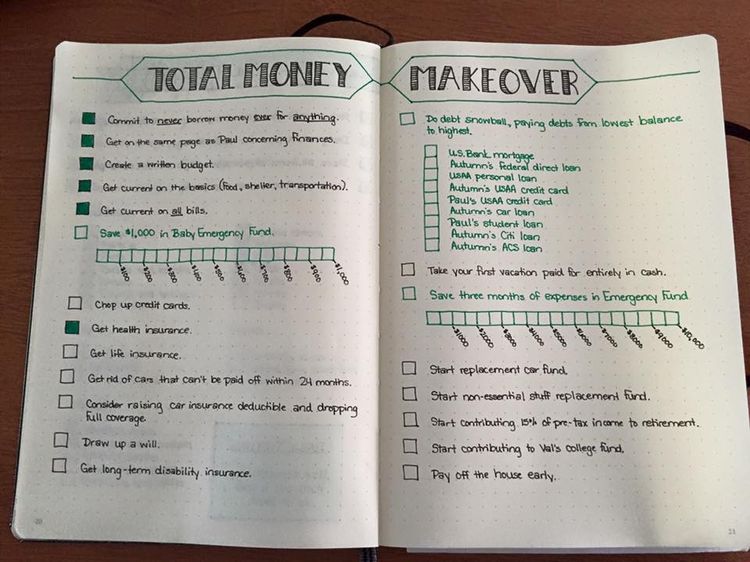 TOTAL MONEY
Commit to never borrow money ever for anything.
Get on the same page as Paul concerning finances.
Create a written budget.
Get current on the basics (food, shelter, transportation).
Get current on all bills.
Save $1,000 in Baby Emergency Fund.
$100 $200 $300 $400 $500 $600 $700 $800 $900 $1,000
Chop up credit cards.
Get health insurance.
Get life insurance.
Get rid of cars that can't be paid off within 24 months.
Consider raising car insurance deductible and dropping
full coverage.
Draw up a will.
Get long-term disability insurance.
20
MAKEOVER
Do debt snowball, paying debts from lowest balance
to highest.
U.S. Bank mortgage
Autumn's federal direct loan
USAA personal loan
Autumn's USAA credit card
Paul's USAA credit card
Autumn's car loan
Paul's student loan
Autumn's Citi loan
Autumn's ACS loan
Take your first vacation paid for entirely in cash.
Save three months of expenses in Emergency Fund
$1000 $2000 $3000 $4000 $5000 $6000 $7000 $8000 $9000 $10,000
Start replacement car fund.
Start non-essential stuff replacement fund.
Start contributing 15% of pre-tax income to retirement.
Start contributing to Val's college fund.
Pay off the house early.
21